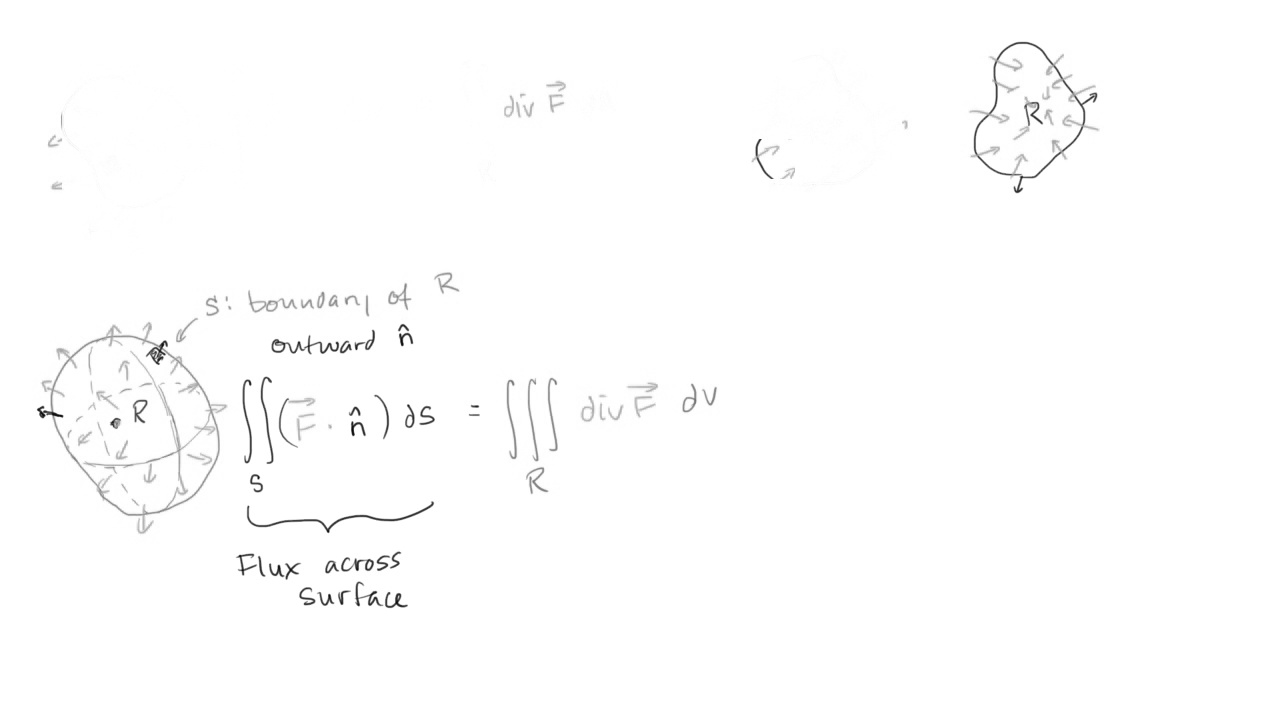 div F⃗
R
S: boundary of R
outward n̂
R
∬_S (F⃗ · n̂) ds = ∭_R div F⃗ dv
Flux across
surface